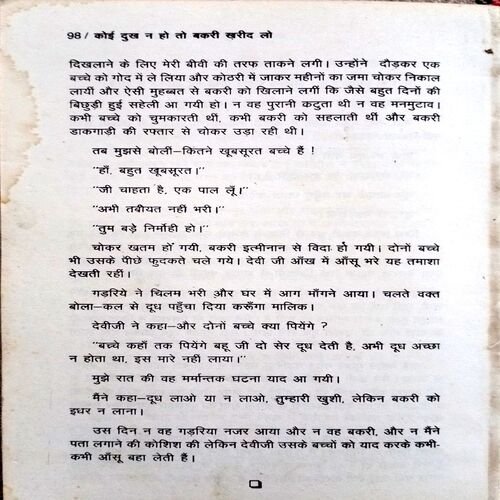 98 / कोई दुख न हो तो बकरी ख़रीद लो
दिखलाने के लिए मेरी बीवी की तरफ ताकने लगी। उन्होंने दौड़कर एक
बच्चे को गोद में ले लिया और कोठरी में जाकर महीनों का जमा चोकर निकाल
लायीं और ऐसी मुहब्बत से बकरी को खिलाने लगीं कि जैसे बहुत दिनों की
बिछुड़ी हुई सहेली आ गयी हो। न वह पुरानी कटुता थी न वह मनमुटाव।
कभी बच्चे को चुमकारती थीं, कभी बकरी को सहलाती थीं और बकरी
डाकगाड़ी की रफ्तार से चोकर उड़ा रही थी।
तब मुझसे बोलीं–कितने खूबसूरत बच्चे हैं !
''हाँ, बहुत खूबसूरत।''
''जी चाहता है, एक पाल लूँ।''
''अभी तबीयत नहीं भरी।''
''तुम बड़े निर्मोही हो।''
चोकर खतम हो गयी, बकरी इत्मीनान से विदा हो गयी। दोनों बच्चे
भी उसके पीछे फुदकते चले गये। देवी जी आँख में आँसू भरे यह तमाशा
देखती रहीं।
गड़रिये ने चिलम भरी और घर में आग माँगने आया। चलते वक्त
बोला–कल से दूध पहुँचा दिया करूँगा मालिक।
देवीजी ने कहा–और दोनों बच्चे क्या पियेंगे ?
''बच्चे कहाँ तक पियेंगे बहू जी दो सेर दूध देती है, अभी दूध अच्छा
न होता था, इस मारे नहीं लाया।''
मुझे रात की वह मर्मान्तक घटना याद आ गयी।
मैंने कहा–दूध लाओ या न लाओ, तुम्हारी खुशी, लेकिन बकरी को
इधर न लाना।
उस दिन न वह गड़रिया नजर आया और न वह बकरी, और न मैंने
पता लगाने की कोशिश की लेकिन देवीजी उसके बच्चों को याद करके कभी-
कभी आँसू बहा लेती हैं।